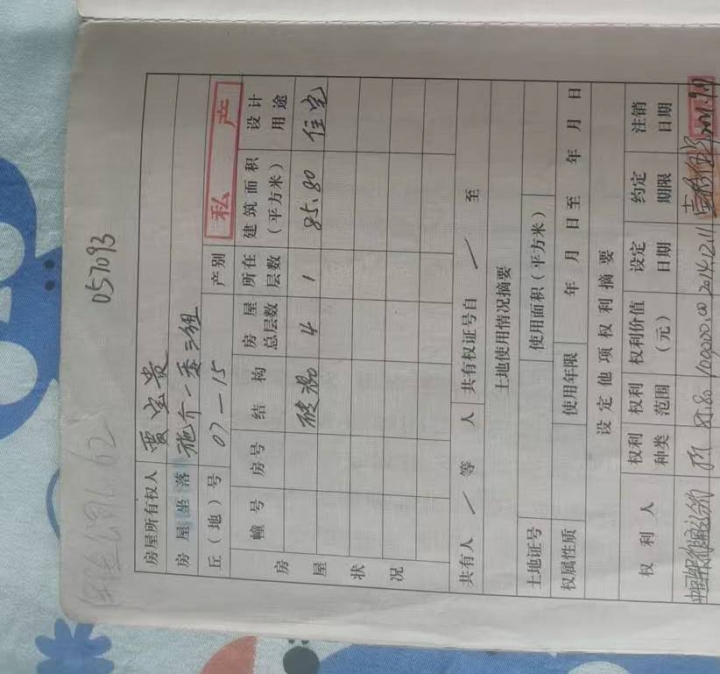 057093
房屋所有权人 贾宝贵
房屋坐落 施介一委三组
丘（地）号 07—15 产别 私 产
房屋状况
幢号 房号 结构 房屋总层数 所在层数 建筑面积（平方米） 设计用途
4 1 85.80 住宅
共有人 / 等 人 共有权证号自 / 至
土地使用情况摘要
土地证号 使用面积（平方米）
权属性质 使用年限 年 月 日至 年 月 日
设定他项权利摘要
权利人 权利种类 权利范围 权利价值（元） 设定日期 约定期限 注销日期
85.80 100000.00 2014.12.11